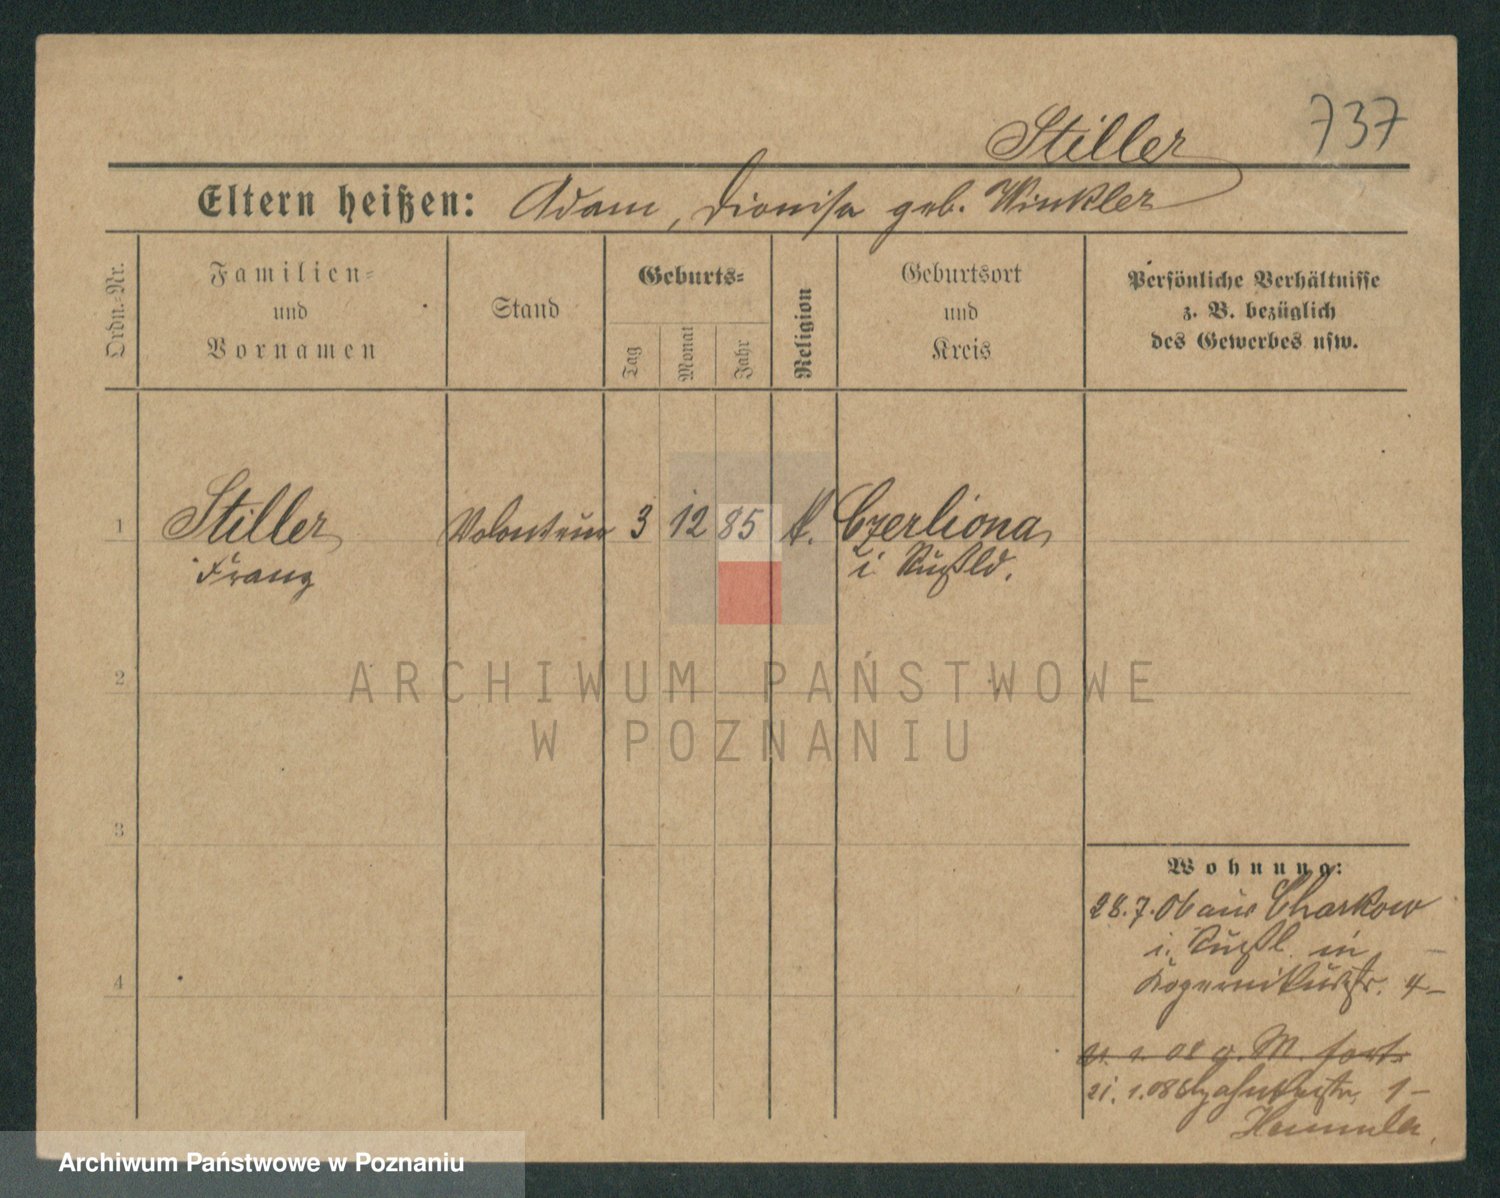 737
Stiller
Eltern heißen: Adam, Dionisa geb. Winkler
Ordn.-Nr.
Familien-
und
Vornamen
Stand
Geburts-
Tag
Monat
Jahr
Religion
Geburtsort
und
Kreis
Persönliche Verhältnisse
z. B. bezüglich
des Gewerbes usw.
1 Stiller Volontär 3 12 85 k. Czerliona
Franz i. Rußld.
2
ARCHIWUM PAŃSTWOWE
W POZNANIU
3
4
Wohnung:
28.7.06 aus Charkow
i. Rußl. in
Kopernikusstr. 4
21. 1. 08 o. M. fort
21. 1. 08 1
Archiwum Państwowe w Poznaniu